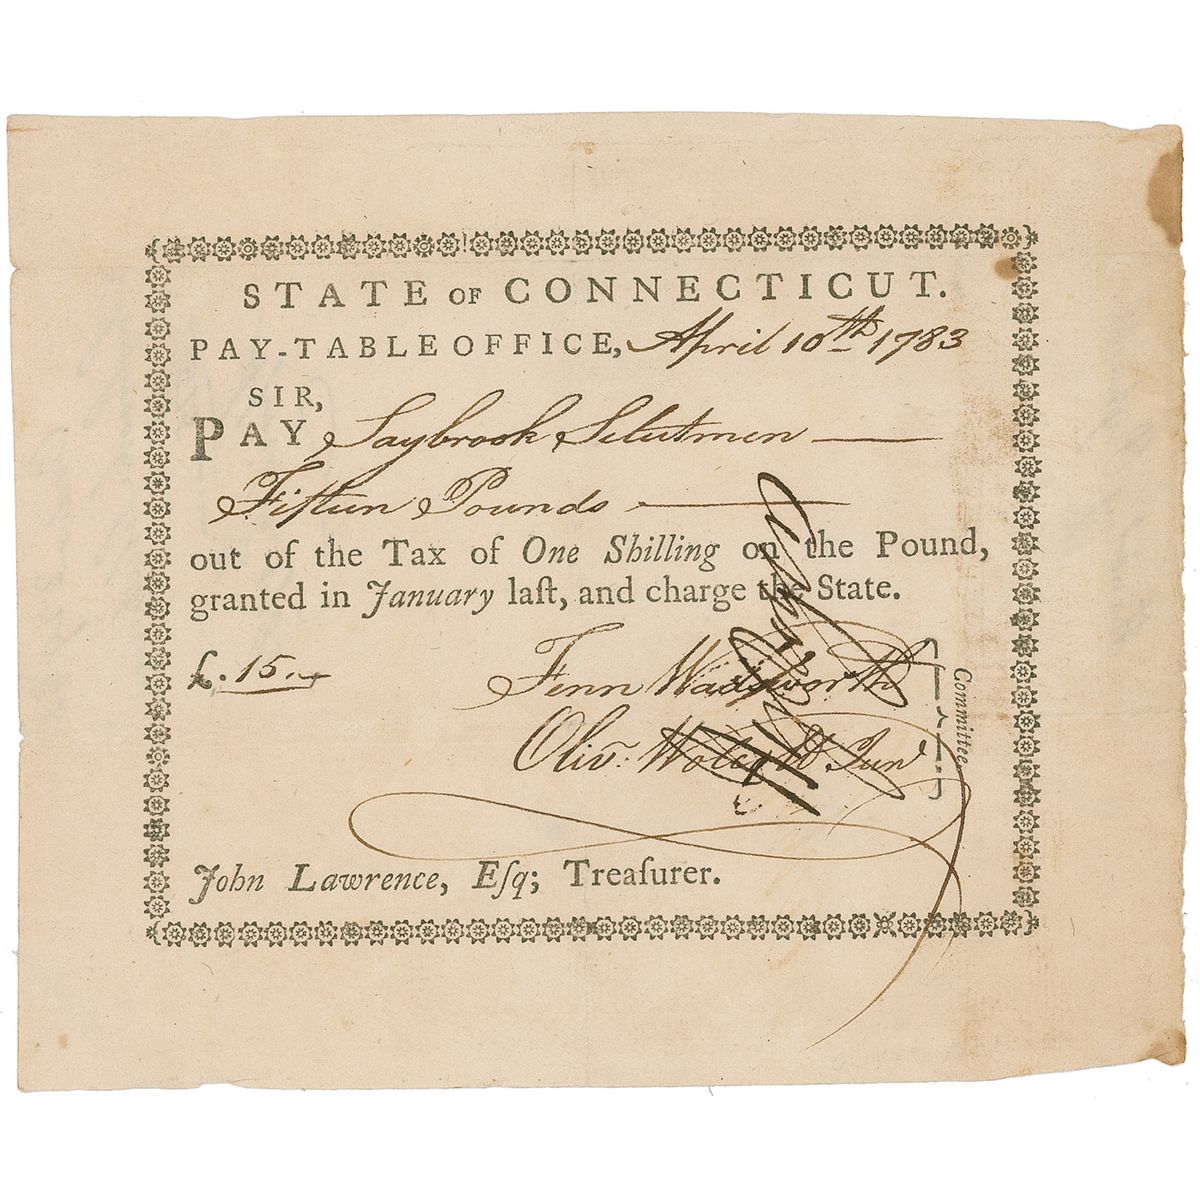 STATE OF CONNECTICUT.
PAY-TABLE OFFICE, April 10th 1783
SIR,
PAY Saybrook Selectmen
Fifteen Pounds
out of the Tax of One Shilling on the Pound,
granted in January laſt, and charge the State.
£. 15..
Fenn Wadsworth
Olivr. Wolcott Junr
Committee.
John Lawrence, Eſq; Treaſurer.